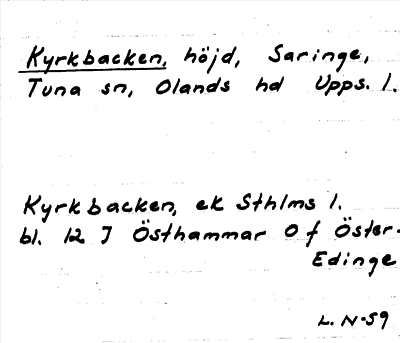 Kyrkbacken, höjd, Saringe,
Tuna sn, Olands hd Upps. l.
Kyrkbacken, ek Sthlms l.
bl. 12 J Östhammar O f Öster-
Edinge
L. N-59